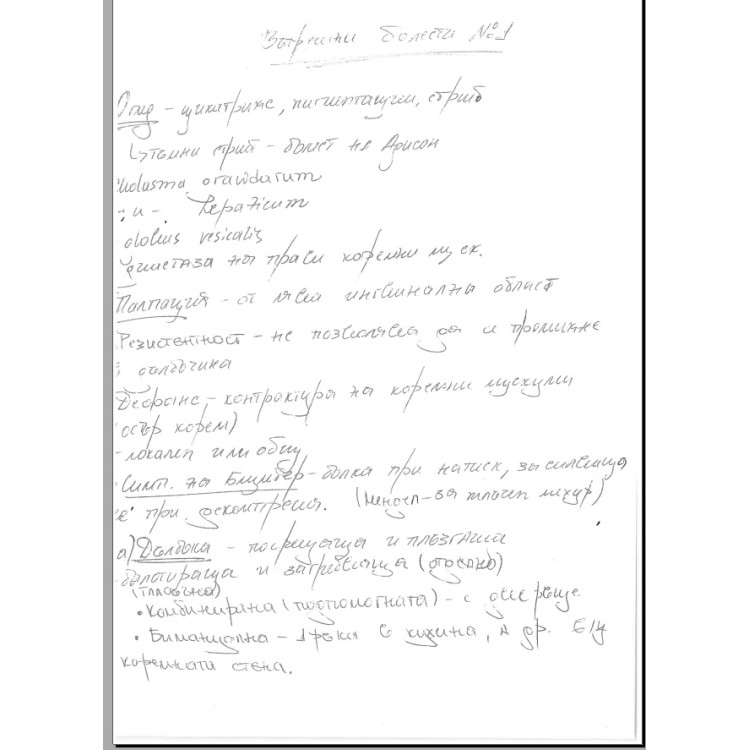 Вътрешни болести №1
Оглед – цикатрикс, пигментации, стрии
↳ тъмни стрии – болест на Адисон
Chloasma gravidarum
- " - hepaticum
globus vesicalis
диастаза на прави коремни муск.
Палпация – от лява ингвинална област
Резистентност – не позволява да се проникне
в дълбочина
Дефанс – контрактура на коремни мускули
(остър корем)
- локален или общ
Симп. на Блумберг – болка при натиск, засилваща
се при декомпресия. (за жлъчен мехур)
а) Дълбока – и плъзгаща
- балотираща и (отгоре)
(тласъчна)
• Комбинирана (подпомогната) – с две ръце
• Бимануална – 1 ръка в кухина, а др. в/у
коремната стена.